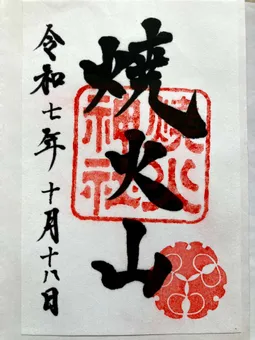 焼火山
焼火神社
令和七年十月十八日